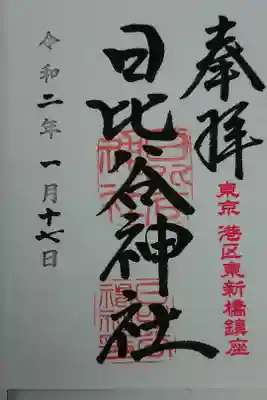 奉拝
東京 港区東新橋鎮座
日比谷神社
令和二年一月十七日